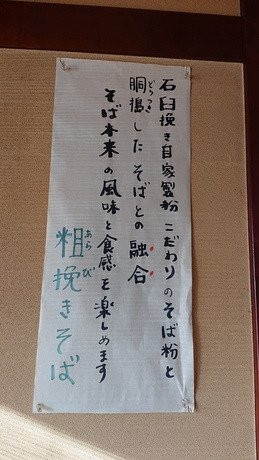 石臼挽き自家製粉こだわりのそば粉と
胴搗したそばとの融合
そば本来の風味と食感を楽しめます
粗挽きそば